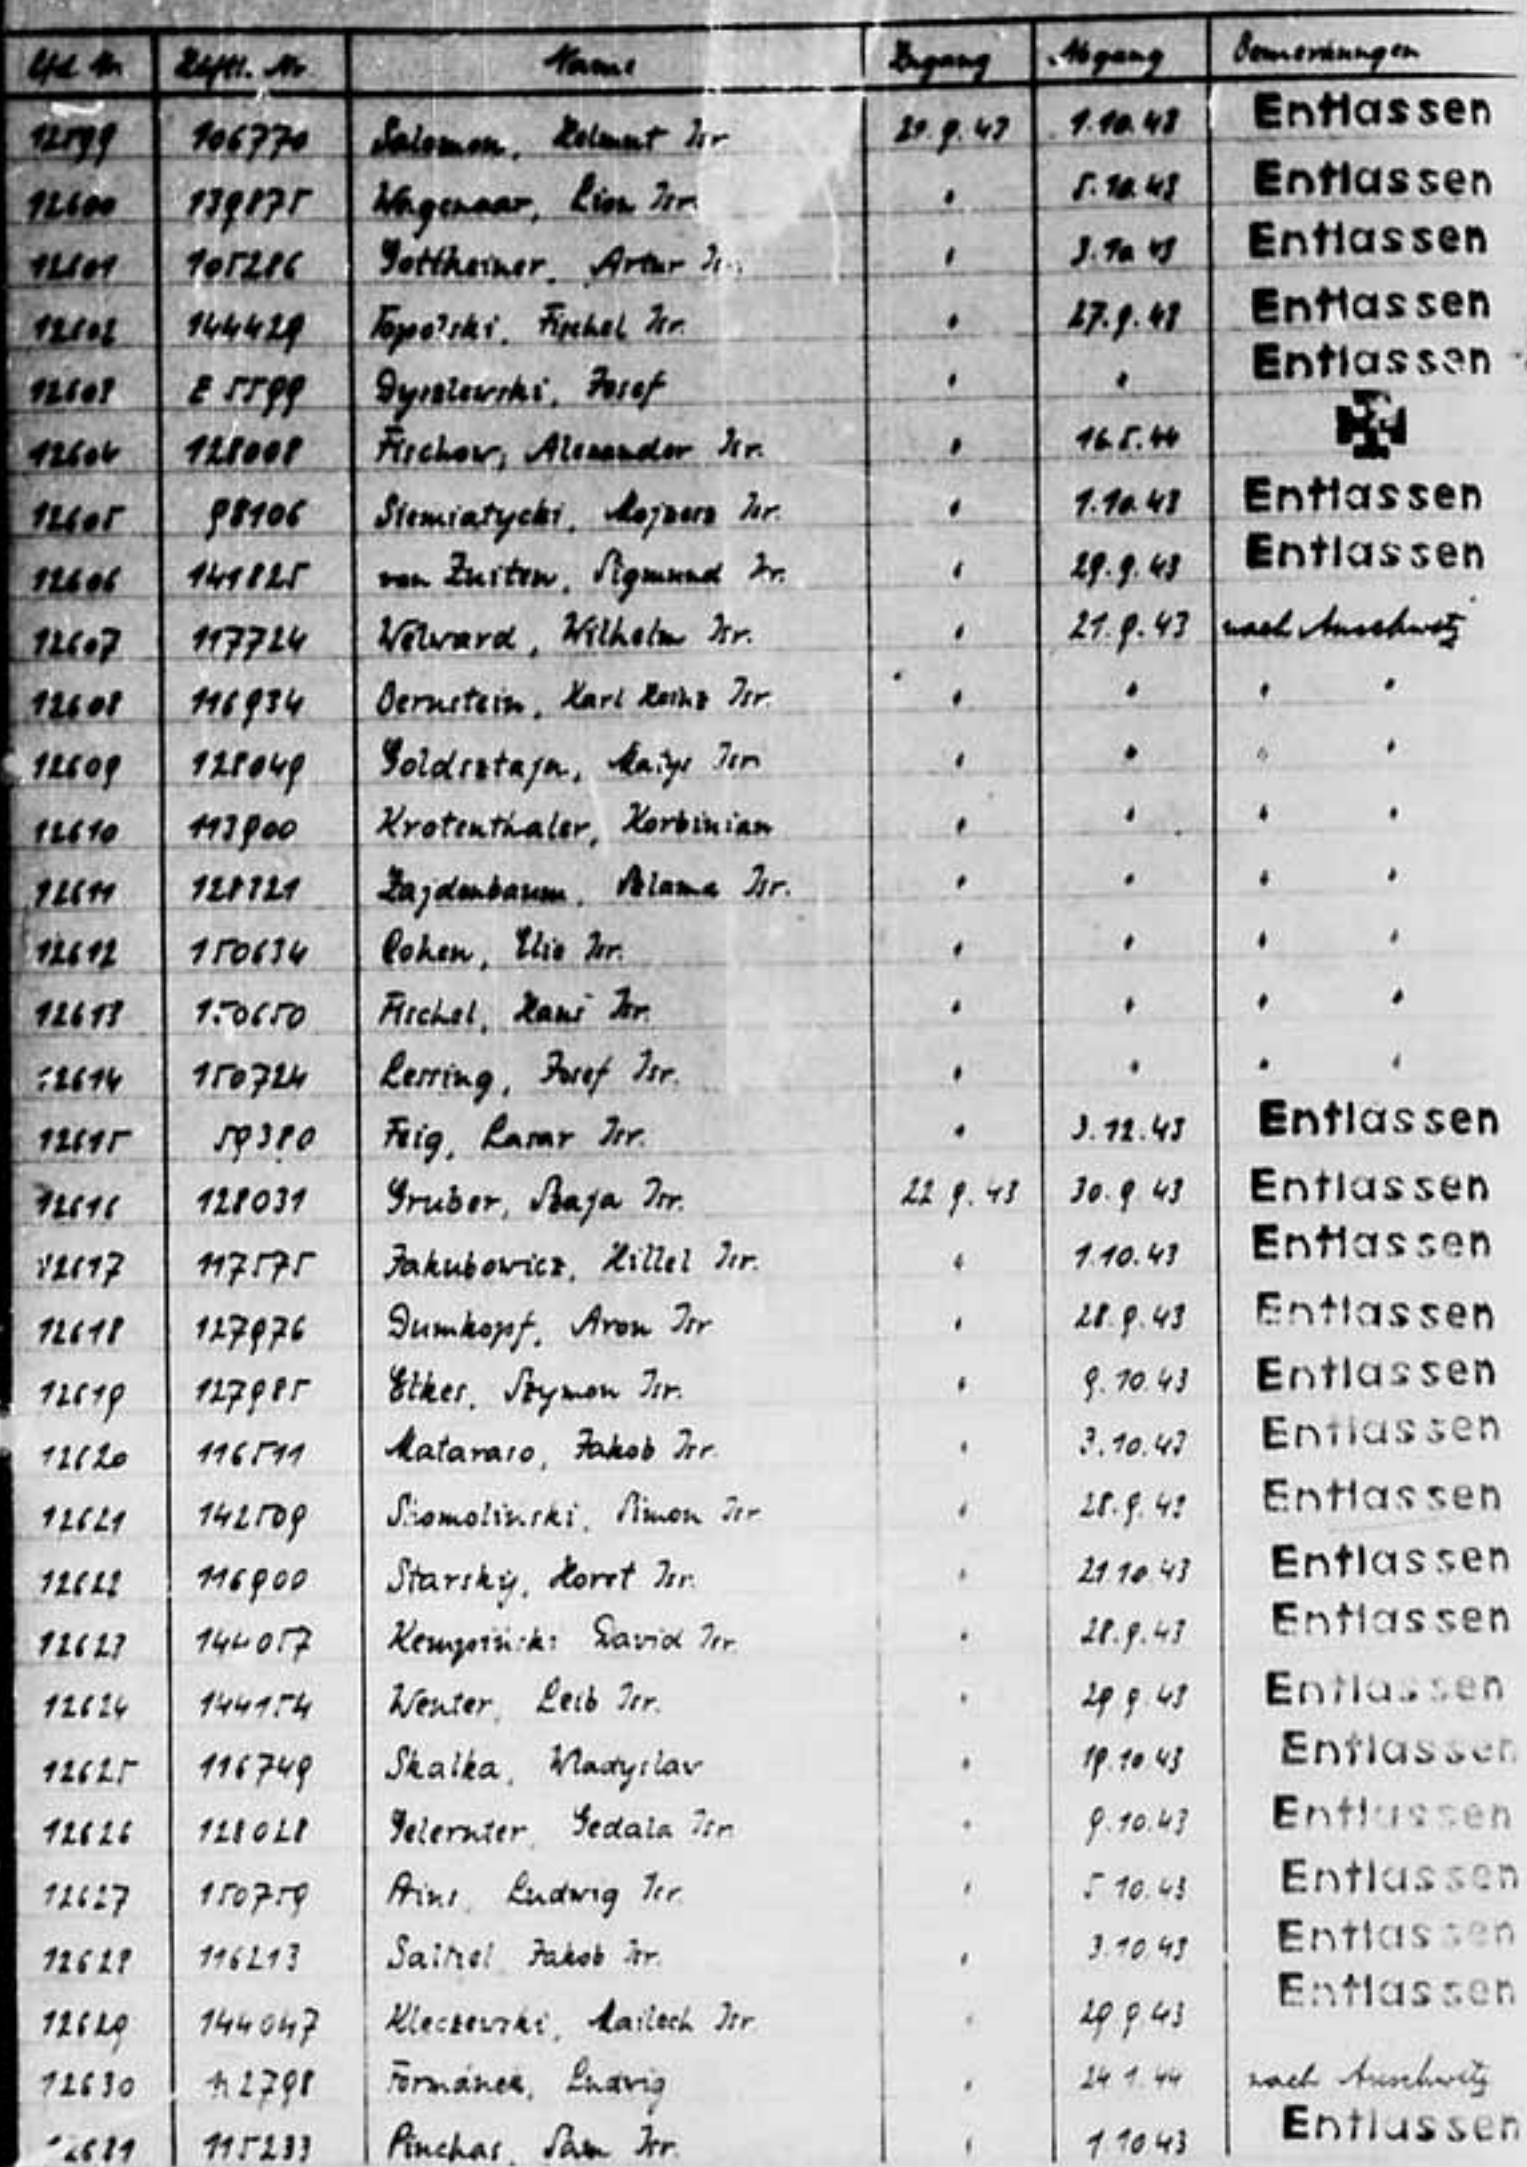 Lfd Nr Häftl. Nr Name Zugang Abgang Bemerkungen
12599 106770 Salomon, Helmut Isr 21.9.43 1.10.43 Entlassen
12600 139875 Wagenaar, Lion Isr. " 5.10.43 Entlassen
12601 105286 Gottheiner, Artur " 3.10 43 Entlassen
12602 144429 Topolski, Fischel Isr. " 27.9.43 Entlassen
12603 E 5599 Dyszlewski, Josef " " Entlassen
12604 128008 Fischow, Alexander Isr. " 16.5.44
12605 98106 Siemiatycki, Isr. " 1.10.43 Entlassen
12606 141825 van Zuiten, Sigmund Isr. " 29.9.43 Entlassen
12607 117724 Welward, Wilhelm Isr. " 21.9.43 nach Auschwitz
12608 116934 Bernstein, Karl Heinz Isr. " " " "
12609 128049 Goldsztajn, Isr. " " " "
12610 113900 Krotenthaler, Korbinian " " " "
12611 128321 Zajdenbaum, Szlama Isr. " " " "
12612 150634 Cohen, Elie Isr. " " " "
12613 150650 Fischel, Hans Isr. " " " "
12614 150724 Lessing, Josef Isr. " " " "
12615 59380 Feig, Lasar Isr. " 3.12.43 Entlassen
12616 128031 Gruber, Szaja Isr. 22 9.43 30.9 43 Entlassen
12617 117575 Jakubowicz, Hillel Isr. " 1.10.43 Entlassen
12618 127976 Dumkopf, Aron Isr " 28.9.43 Entlassen
12619 127985 Etkes, Szymon Isr. " 9.10.43 Entlassen
12620 116511 Mataraso, Jakob Isr. " 3.10.43 Entlassen
12621 142509 Simon Isr " 28.9.43 Entlassen
12622 116900 Starsky, Horst Isr. " 21.10.43 Entlassen
12623 144057 Kempinski David Isr. " 28.9.43 Entlassen
12624 144154 Wenter, Leib Isr. " 29 9 43 Entlassen
12625 116749 Skalka, Wladyslav " 19.10 43 Entlassen
12626 128028 Gelernter, Gedala Isr. " 9.10.43 Entlassen
12627 150759 Ludwig Isr. " 5 10.43 Entlassen
12628 116213 Jakob Isr. " 3.10 43 Entlassen
12629 144047 Kleczewski, Mailech Isr. " 29 9 43 Entlassen
12630 2798 Formánek, Ludvig " 24 1.44 nach Auschwitz
12631 115233 Pinchas, Sam Isr. " 1 10 43 Entlassen